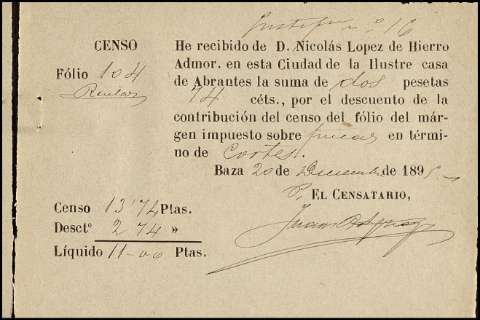 CENSO
Fólio 104
He recibido de D. Nicolás Lopez de Hierro
Admor. en esta Ciudad de la Ilustre casa
de Abrantes la suma de dos pesetas
74 céts., por el descuento de la
contribución del censo del fólio del már-
gen impuesto sobre fincas en térmi-
no de Cortes.
Baza 20 de Diciembre de 189
P. EL CENSATARIO,
Censo 13'74 Ptas.
Desctº 2 74 »
Líquido 11-00 Ptas.